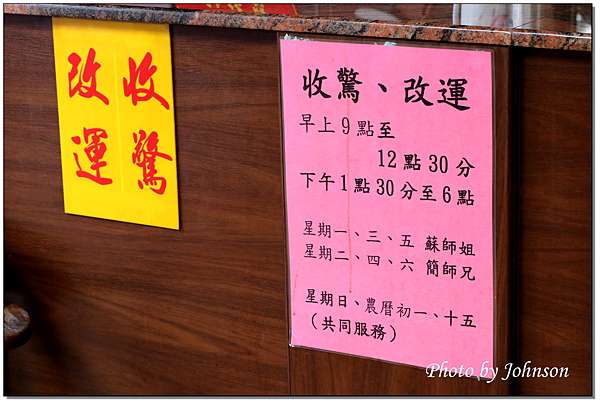 收驚
改運
收驚、改運
早上9點至
12點30分
下午1點30分至6點
星期一、三、五 蘇師姐
星期二、四、六 簡師兄
星期日、農曆初一、十五
(共同服務)
Photo by Johnson